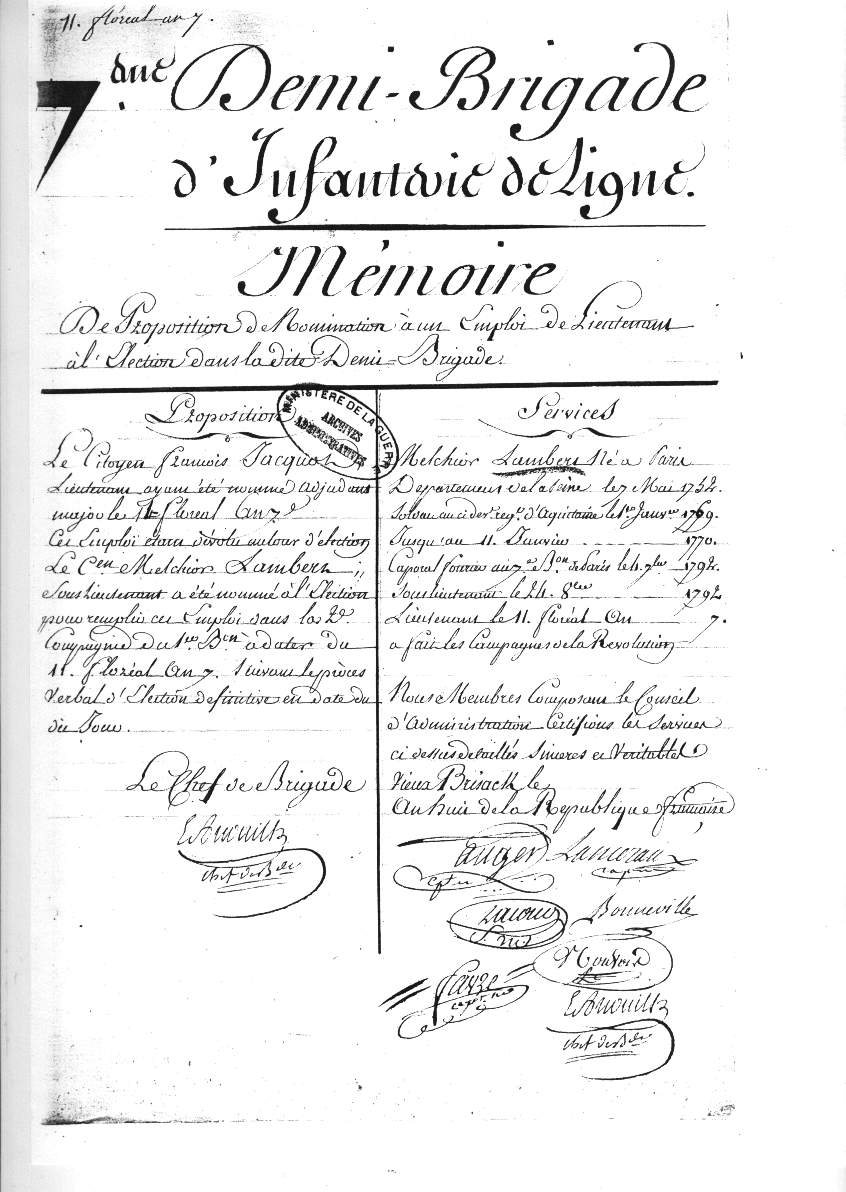 11. floréal an 7.
7 eme Demi-Brigade
d'Infanterie de Ligne.
Mémoire
De Proposition de Nomination à un Emploi de Lieutenant
à l'Election dans la dite Demi-Brigade.
Proposition
MINISTERE DE LA GUERRE
ARCHIVES
ADMINISTRATIVES
Le Citoyen francois Jacquot
Lieutenant ayant été nommé adjudant
major le 11 floreal an 7e
Cet Emploi étant dévolu au tour d'élection
Le Cen Melchior Lambert
Sous Lieutenant a été nommé à l'Election
pour remplir cet Emploi dans la 2e
Compagnie du 1er Bon à dater du
11. floréal an 7. Suivant le procès
Verbal d'Election définitive en date du
dit Jour.
Le Chef de Brigade
chef de Bde
Services
Melchior Lambert Né à Paris
Departement de la Seine le 7 Mai 1752.
Soldat au ci devt régt d'Aquitaine le 1er Janvier 1769.
Jusqu'au 11. Janvier 1770.
Caporal fourier au 7e Bon de Paris le 4 7bre 1792.
Sous lieutenant le 24. 8bre 1792
Lieutenant le 11. floréal an 7.
a fait les Campagnes de la Revolution
Nous Membres Composant le Conseil
d'Administration Certifions les services
ci dessus detaillés Sinceres et Veritables
Vieux Brisack le
An huit de la Republique francaise
auger
cpne
Bonneville
chef de Bde